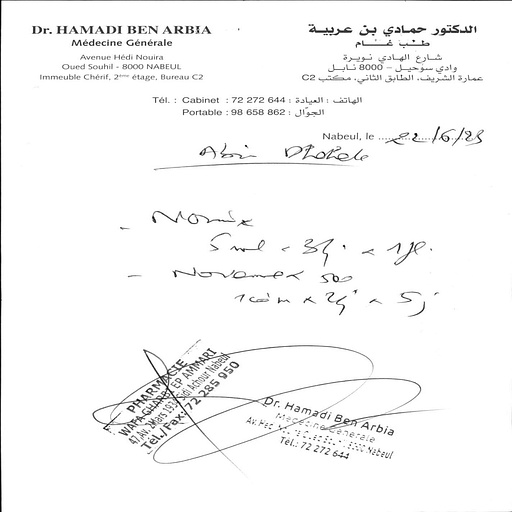 Dr. HAMADI BEN ARBIA
Médecine Générale
Avenue Hédi Nouira
Oued Souhil - 8000 NABEUL
Immeuble Chérif, 2ème étage, Bureau C2
الدكتور حمادي بن عربية
طـب عـــام
شارع الهادي نويرة
وادي سوحيل - 8000 نابل
عمارة الشريف، الطابق الثاني، مكتب C2
Tél. : Cabinet : 72 272 644 : الهاتف : العيادة
Portable : 98 658 862 : الجوّال
Nabeul, le 22/6/23
- 
5 ml x 3/j x
- 500
x 2/j x 5j
PHARMACIE
WAFA GHARBI EP AMMARI
47 Av. Mars 1934 Sidi Achour Nabeul
Tel./Fax: 72 285 950
Dr. Hamadi Ben Arbia
Médecine Générale
Nabeul
Tél.: 72 272 644